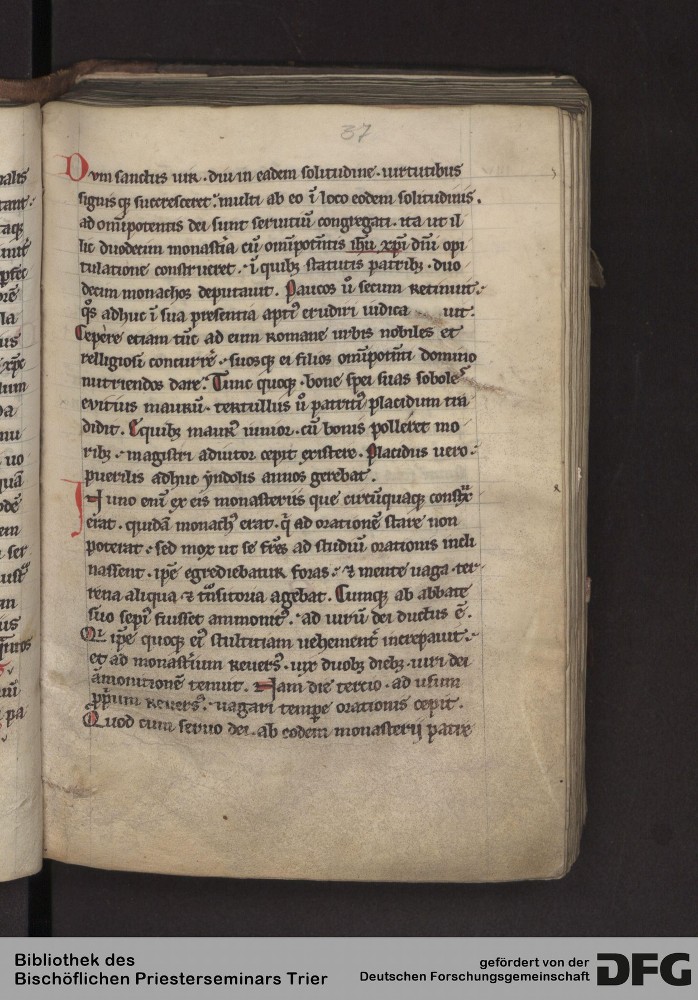 37
Dum sanctus uir · diu in eadem solitudine · uirtutibus
signisq; succresceret : multi ab eo ī loco eodem solitudinis .
ad om̄ipotentis dei sunt seruitiū congregati · ita ut il
lic duodecim monast͛ia cū om̄ipotentis ihū xp̄i dn̄i opi
tulatione construeret · ī quibꝫ statutis patribꝫ · duo
decim monachos deputauit . Paucos ū secum retinuit :
qͦs adhuc ī sua presentia aptiꝰ erudiri iudica uit :
Cepere etiam tūc ad eum romane urbis nobiles et
relligiosi concurrē · suosq; ei filios om̄ipotenti domino
nutriendos dare : Tunc quoq; · bone spei suas sobole
evitius maurū · tertullus ū patritiꝰ placidum tra
didit . Equibꝫ maurꝰ iunior · cū bonis polleret mo
ribꝫ · magistri adiutor cepit existere . Placidus uero :
puerilis adhuc yndolis annos gerebat .
In uno enī ex eis monasteriis que circūquaq; constͣx
erat · quidā monachꝰ erat · qͥ ad orationē stare non
poterat : sed mox ut se fr̄es ad studiū orationis incli
nassent · ip̄e egrediebatur foras : ⁊ mente uaga · ter
rena aliqua ⁊ tͣnsitoria agebat . Cumq; ab abbate
suo sepiꝰ fuisset ammonitꝰ · ad uirū dei ductus ē .
Qi ip̄e quoq; eiꝰ stultitiam uehement͛ increpauit :
et ad monast͛ium reuersꝰ · uix duobꝫ diebꝫ · uiri dei
āmonitionē tenuit . Nam die tertio · ad usum
ꝓprium reuersꝰ · uagari tempore orationis cepit .
Quod cum seruo dei · ab eodem monasterij patre
Bibliothek des
Bischöflichen Priesterseminars Trier
gefördert von der
Deutschen Forschungsgemeinschaft
DFG